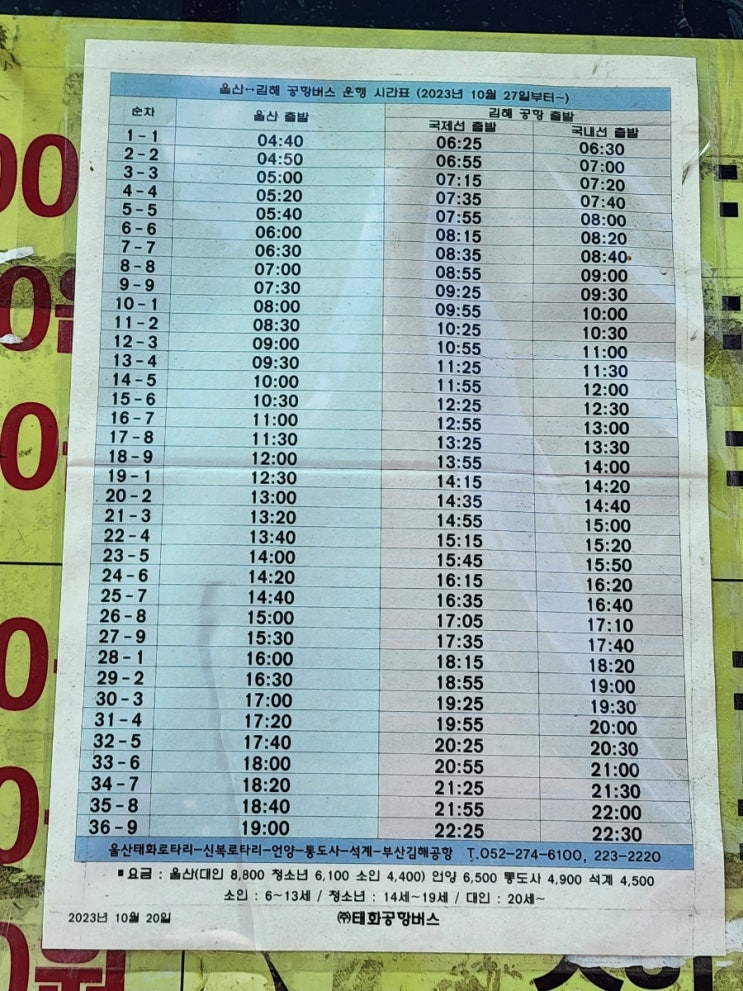 울산↔김해 공항버스 운행 시간표 (2023년 10월 27일부터~)
순차 울산 출발 김해 공항 출발
국제선 출발 국내선 출발
1-1 04:40 06:25 06:30
2-2 04:50 06:55 07:00
3-3 05:00 07:15 07:20
4-4 05:20 07:35 07:40
5-5 05:40 07:55 08:00
6-6 06:00 08:15 08:20
7-7 06:30 08:35 08:40
8-8 07:00 08:55 09:00
9-9 07:30 09:25 09:30
10-1 08:00 09:55 10:00
11-2 08:30 10:25 10:30
12-3 09:00 10:55 11:00
13-4 09:30 11:25 11:30
14-5 10:00 11:55 12:00
15-6 10:30 12:25 12:30
16-7 11:00 12:55 13:00
17-8 11:30 13:25 13:30
18-9 12:00 13:55 14:00
19-1 12:30 14:15 14:20
20-2 13:00 14:35 14:40
21-3 13:20 14:55 15:00
22-4 13:40 15:15 15:20
23-5 14:00 15:45 15:50
24-6 14:20 16:15 16:20
25-7 14:40 16:35 16:40
26-8 15:00 17:05 17:10
27-9 15:30 17:35 17:40
28-1 16:00 18:15 18:20
29-2 16:30 18:55 19:00
30-3 17:00 19:25 19:30
31-4 17:20 19:55 20:00
32-5 17:40 20:25 20:30
33-6 18:00 20:55 21:00
34-7 18:20 21:25 21:30
35-8 18:40 21:55 22:00
36-9 19:00 22:25 22:30
울산태화로타리-신복로타리-언양-통도사-석계-부산김해공항 T.052-274-6100, 223-2220
■요금 : 울산(대인 8,800 청소년 6,100 소인 4,400) 언양 6,500 통도사 4,900 석계 4,500
소인 : 6~13세 / 청소년 : 14세~19세 / 대인 : 20세~
2023년 10월 20일 ㈜태화공항버스